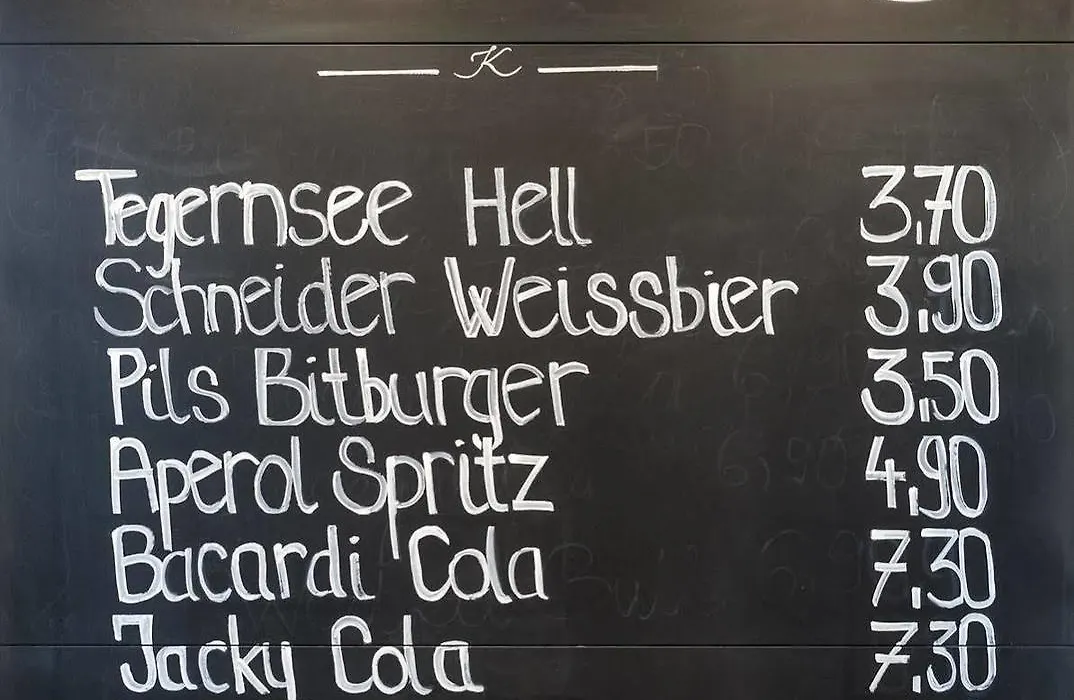 K
Tegernsee Hell 3,70
Schneider Weissbier 3,90
Pils Bitburger 3,50
Aperol Spritz 4,90
Bacardi Cola 7,30
Jacky Cola 7,30